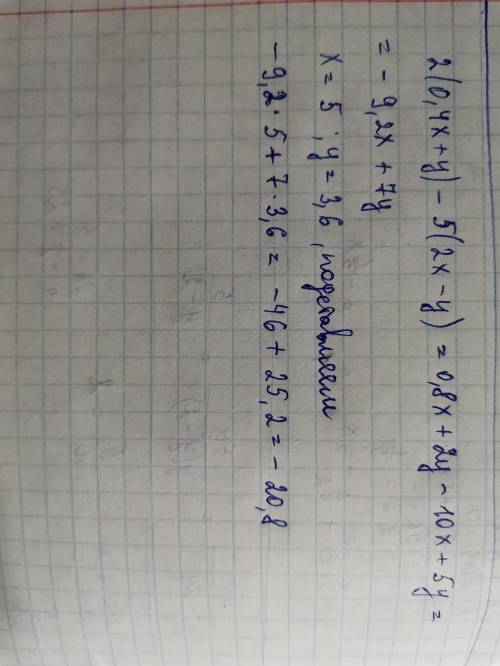 2(0,4x+y) - 5(2x-y) = 0,8x + 2y - 10x + 5y =
= - 9,2x + 7y
x = 5 ; y = 3,6 , подставляем
-9,2 · 5 + 7 · 3,6 = -46 + 25,2 = - 20,8